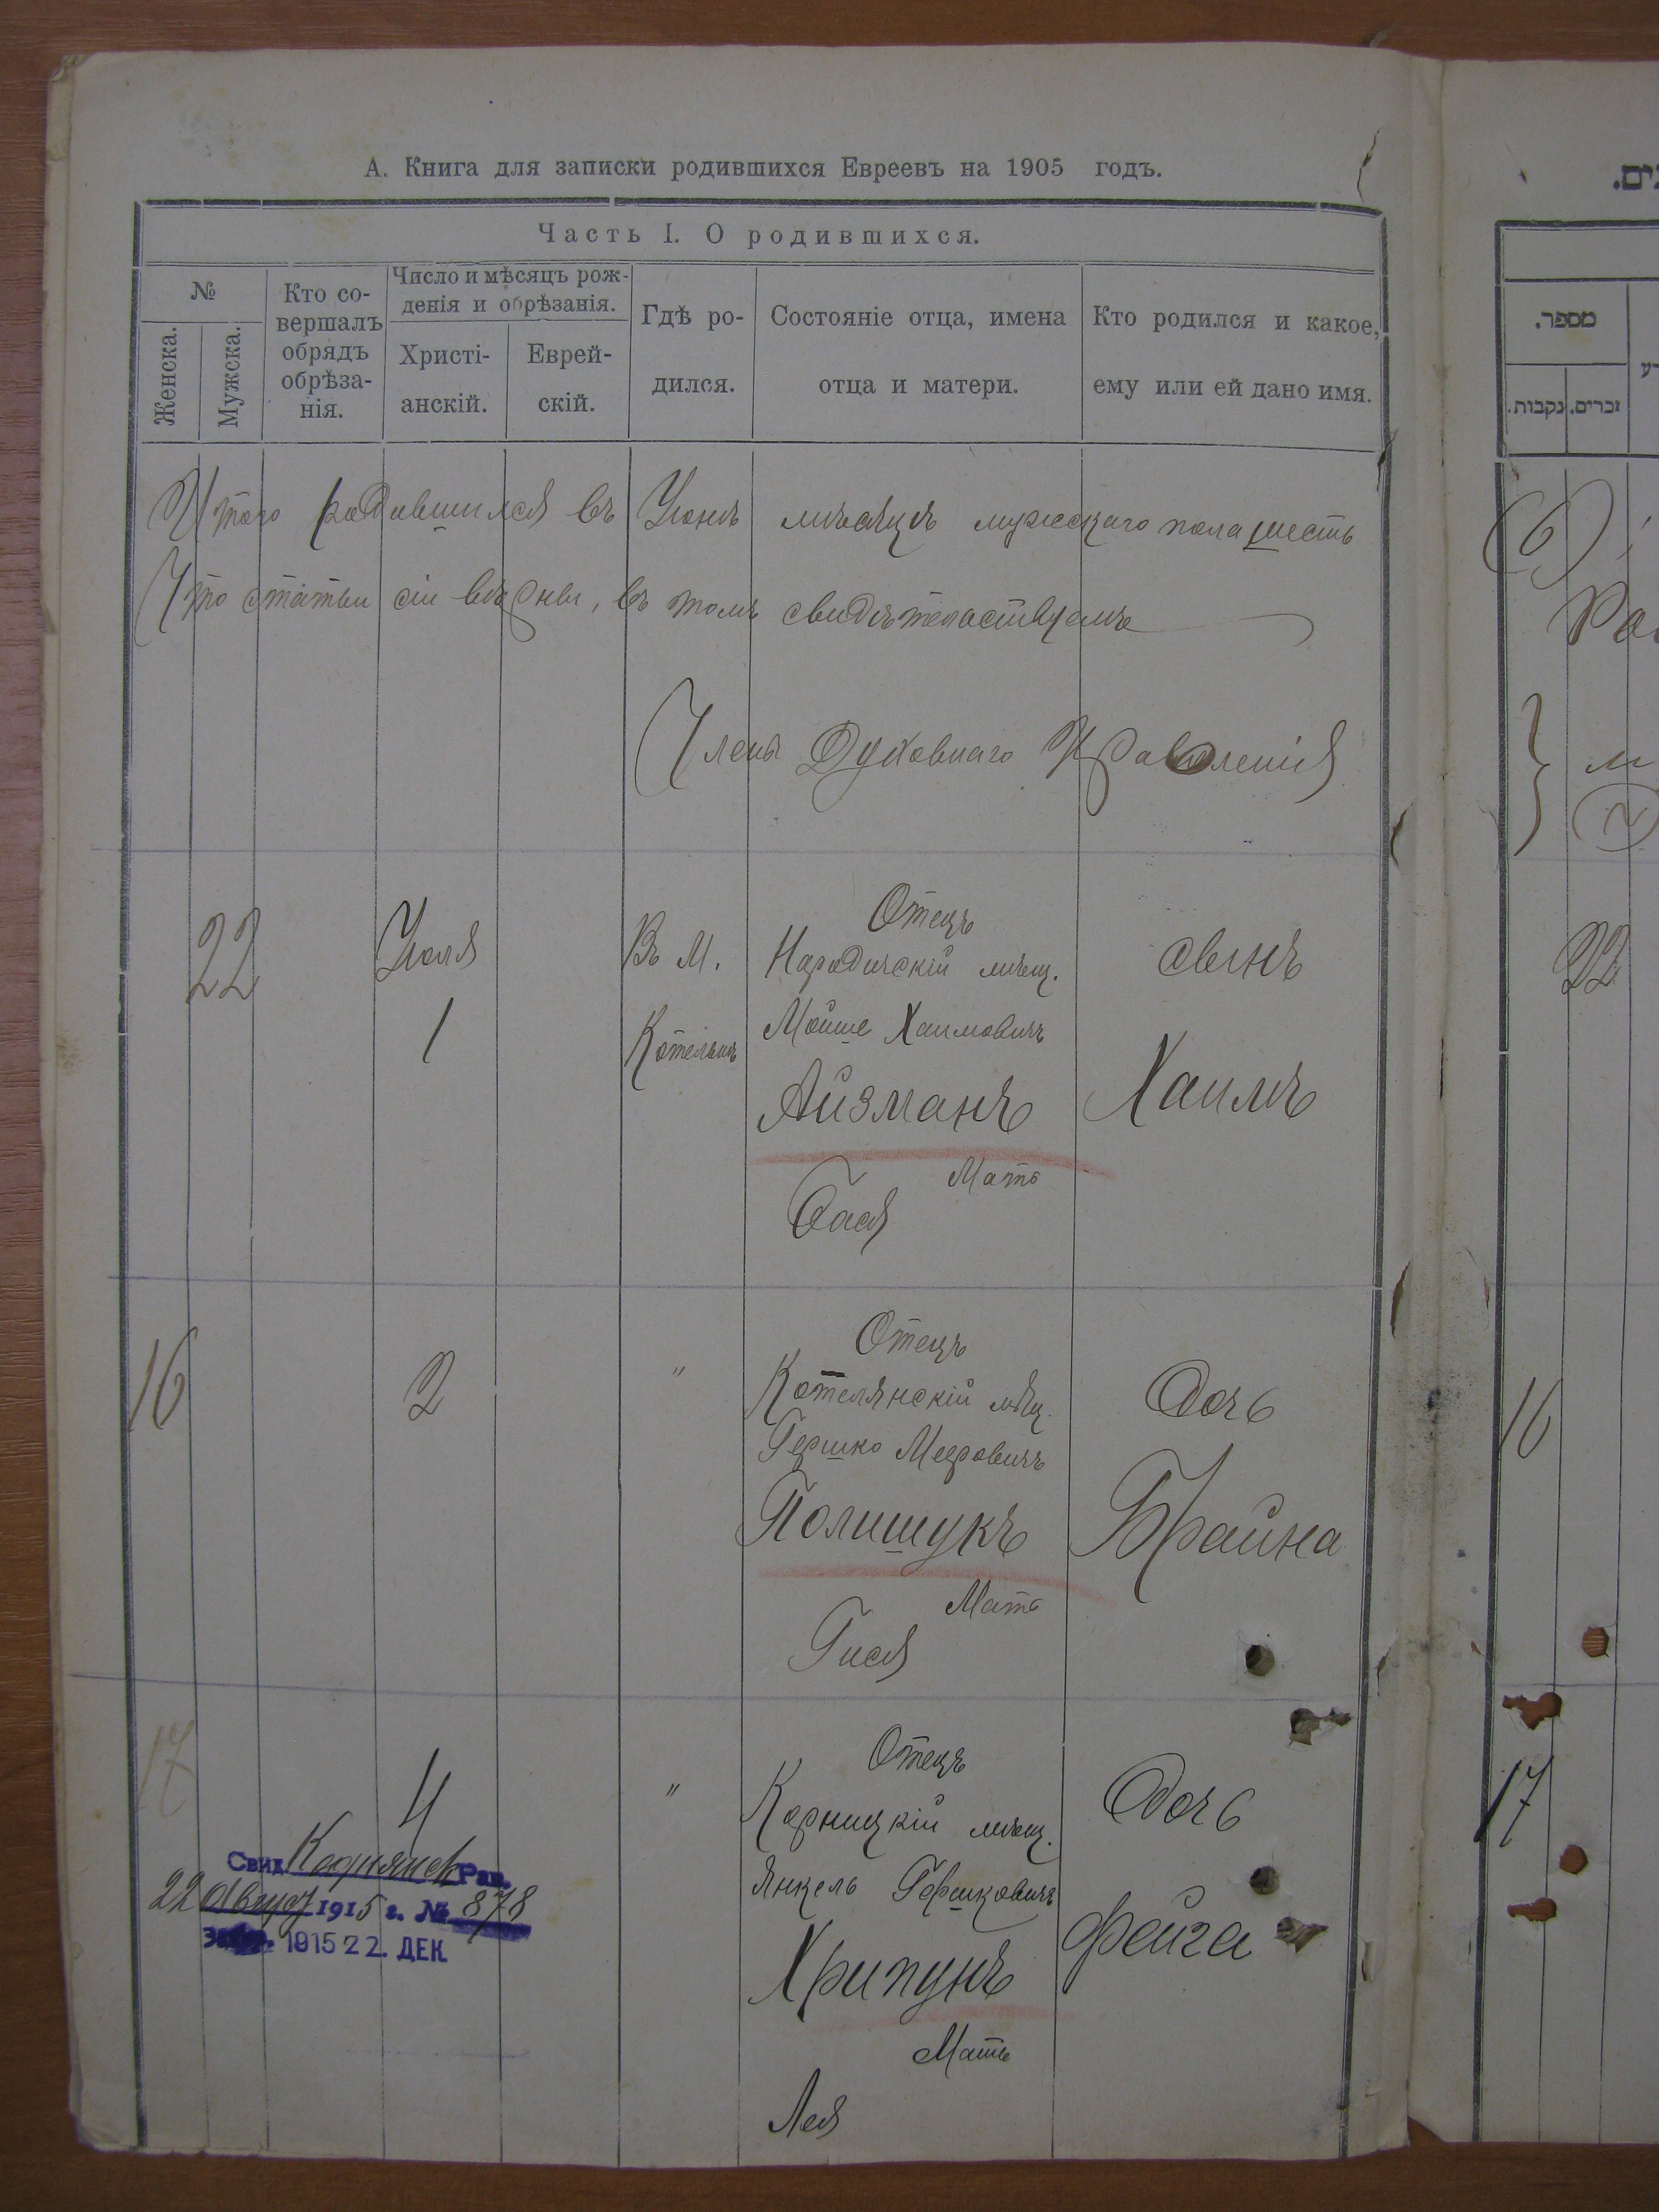 А. Книга для записки родившихся Евреевъ на 1905 годъ.
Часть I. О родившихся.
№
Женска.
Мужска.
Кто со-
вершалъ
обрядъ
обрѣза-
нія.
Число и мѣсяцъ рож-
денія и обрѣзанія.
Христі-
анскій.
Еврей-
скій.
Гдѣ ро-
дился.
Состояніе отца, имена
отца и матери.
Кто родился и какое,
ему или ей дано имя.
Итого родившихся въ Іюнѣ мѣсяцѣ мужескаго пола шесть
Что статьи сіи вѣрны, въ томъ свидѣтельствуемъ
Члены Духовнаго Правленія
22
Іюля
1
Въ М.
Котельнѣ
Отецъ
Народичскій мѣщ.
Мойше Хаимовичъ
Айзманъ
Мать
Бася
сынъ
Хаимъ
16
2
"
Отецъ
Котелянскій мѣщ.
Гершко Мееровичъ
Полищукъ
Мать
Гися
Дочь
Брайна
17
4
"
Отецъ
Корницкій мѣщ.
Янкель Гершковичъ
Хрипунъ
Мать
Лея
Дочь
Фейга
Свид. Рав.
22 1915 г. № 878
1915 22. ДЕК
ים.
מספר.
זכרים.
נקבות.
(6)
22
16
17